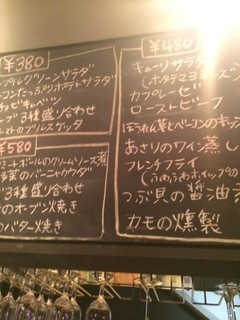 ¥380
プルグリーンサラダ
コンたっぷりポテトサラダ
チョビキャベツ
3種盛り合わせ
のブルスケッタ
¥580
ミートボールのクリームソース煮
のバーニャカウダ
3種盛り合わせ
のオーブン焼き
のバター焼き
¥480
キューリサラダ
(ホタテマヨネーズ
カプレーゼ
ローストビーフ
ほうれん草とベーコンのキッシ
あさりのワイン蒸し
フレンチフライ
ホイップの
つぶ貝の醤油
カモの燻製